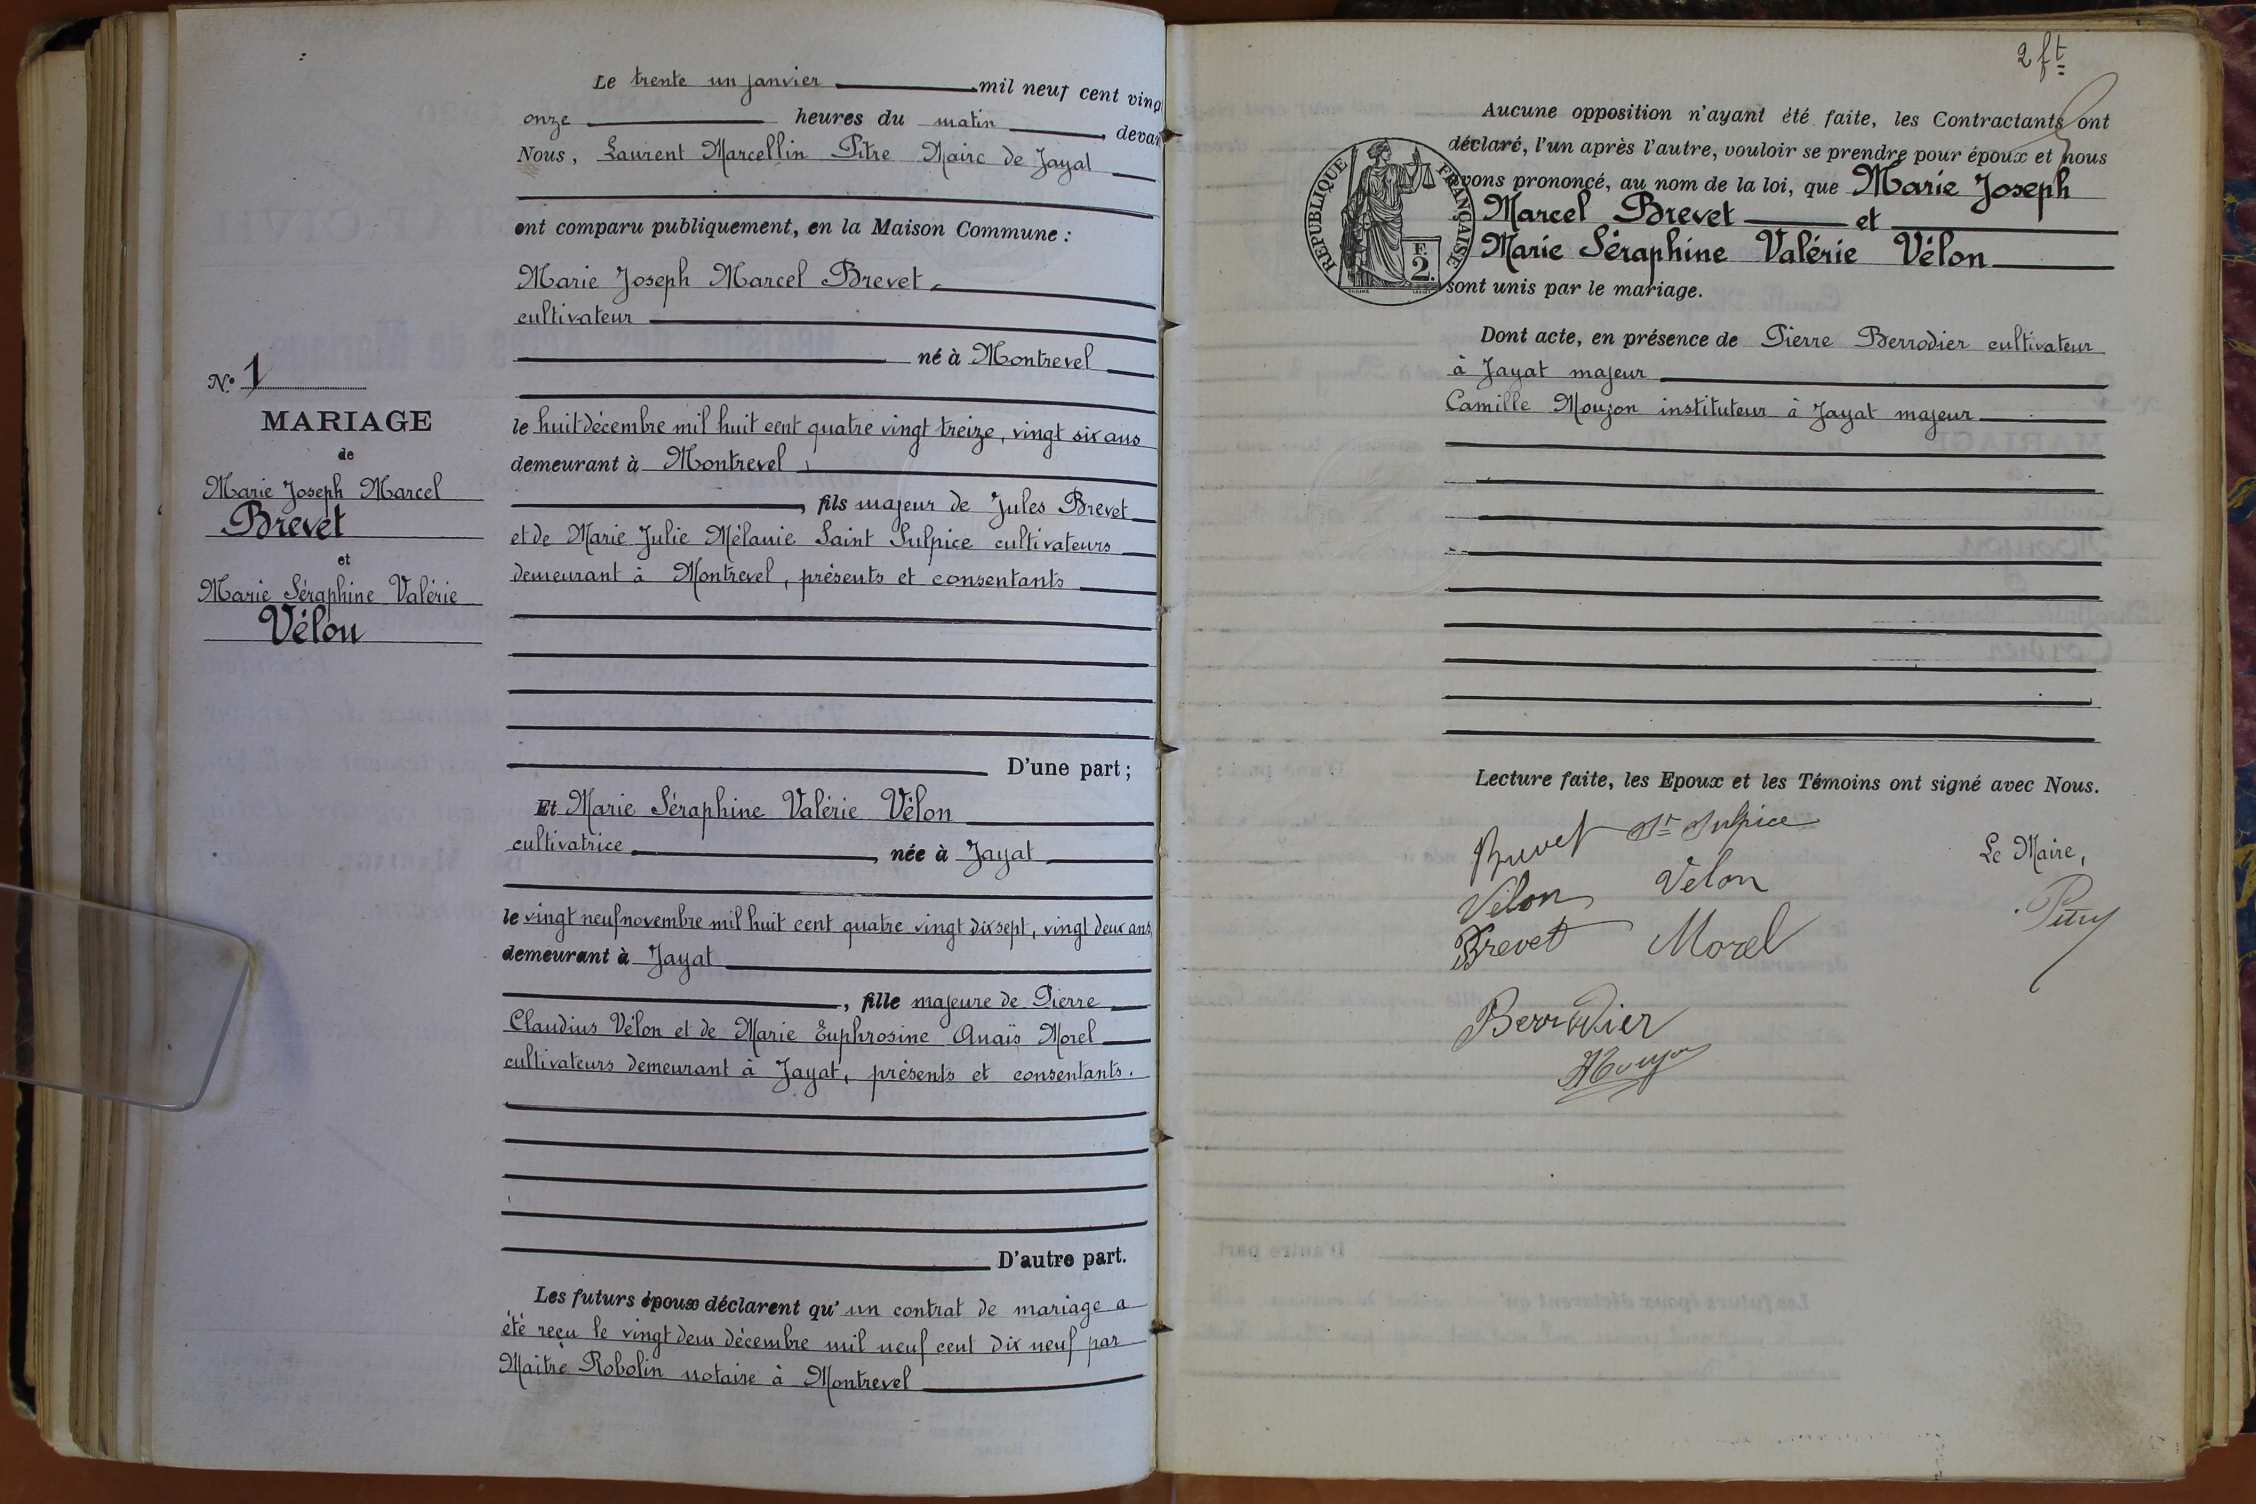 Le trente un janvier mil neuf cent vingt
onze heures du matin, devan
Nous, Laurent Marcellin Pitre Maire de Jayat
ont comparu publiquement, en la Maison Commune :
Marie Joseph Marcel Brevet,
cultivateur
né à Montrevel
le huit décembre mil huit cent quatre vingt treize, vingt six ans
demeurant à Montrevel,
, fils majeur de Jules Brevet
et de Marie Julie Mélanie Saint Sulpice cultivateurs
demeurant à Montrevel, présents et consentants
D'une part ;
Et Marie Séraphine Valérie Vélon
cultivatrice, née à Jayat
le vingt neuf novembre mil huit cent quatre vingt dix sept, vingt deux ans,
demeurant à Jayat
, fille majeure de Pierre
Claudius Vélon et de Marie Euphrosine Anaïs Morel
cultivateurs demeurant à Jayat, présents et consentants.
D'autre part.
Les futurs époux déclarent qu'un contrat de mariage a
été reçu le vingt deux décembre mil neuf cent dix neuf par
Maitre Robolin notaire à Montrevel
N.° 1
MARIAGE
de
Marie Joseph Marcel
Brevet
et
Marie Séraphine Valérie
Vélon
2 ft
Aucune opposition n'ayant été faite, les Contractants ont
déclaré, l'un après l'autre, vouloir se prendre pour époux et nous
avons prononcé, au nom de la loi, que Marie Joseph
Marcel Brevet et
Marie Séraphine Valérie Vélon
sont unis par le mariage.
RÉPUBLIQUE FRANÇAISE
F.
2.
Dont acte, en présence de Pierre Berrodier cultivateur
à Jayat majeur
Camille Moujon instituteur à Jayat majeur
Lecture faite, les Epoux et les Témoins ont signé avec Nous.
Brevet St Sulpice
Le Maire,
Vélon Velon
Brevet Morel
Berrodier
Moujon